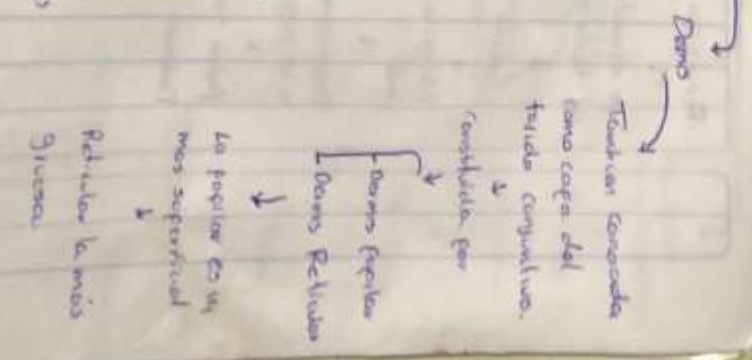 Dermo
Tambien conocida
como capa del
tejido conjuntivo.
Constituida por
Dermis Papilar
Dermis Reticular
La papilar es la
mas superficial
Reticular la más
gruesa